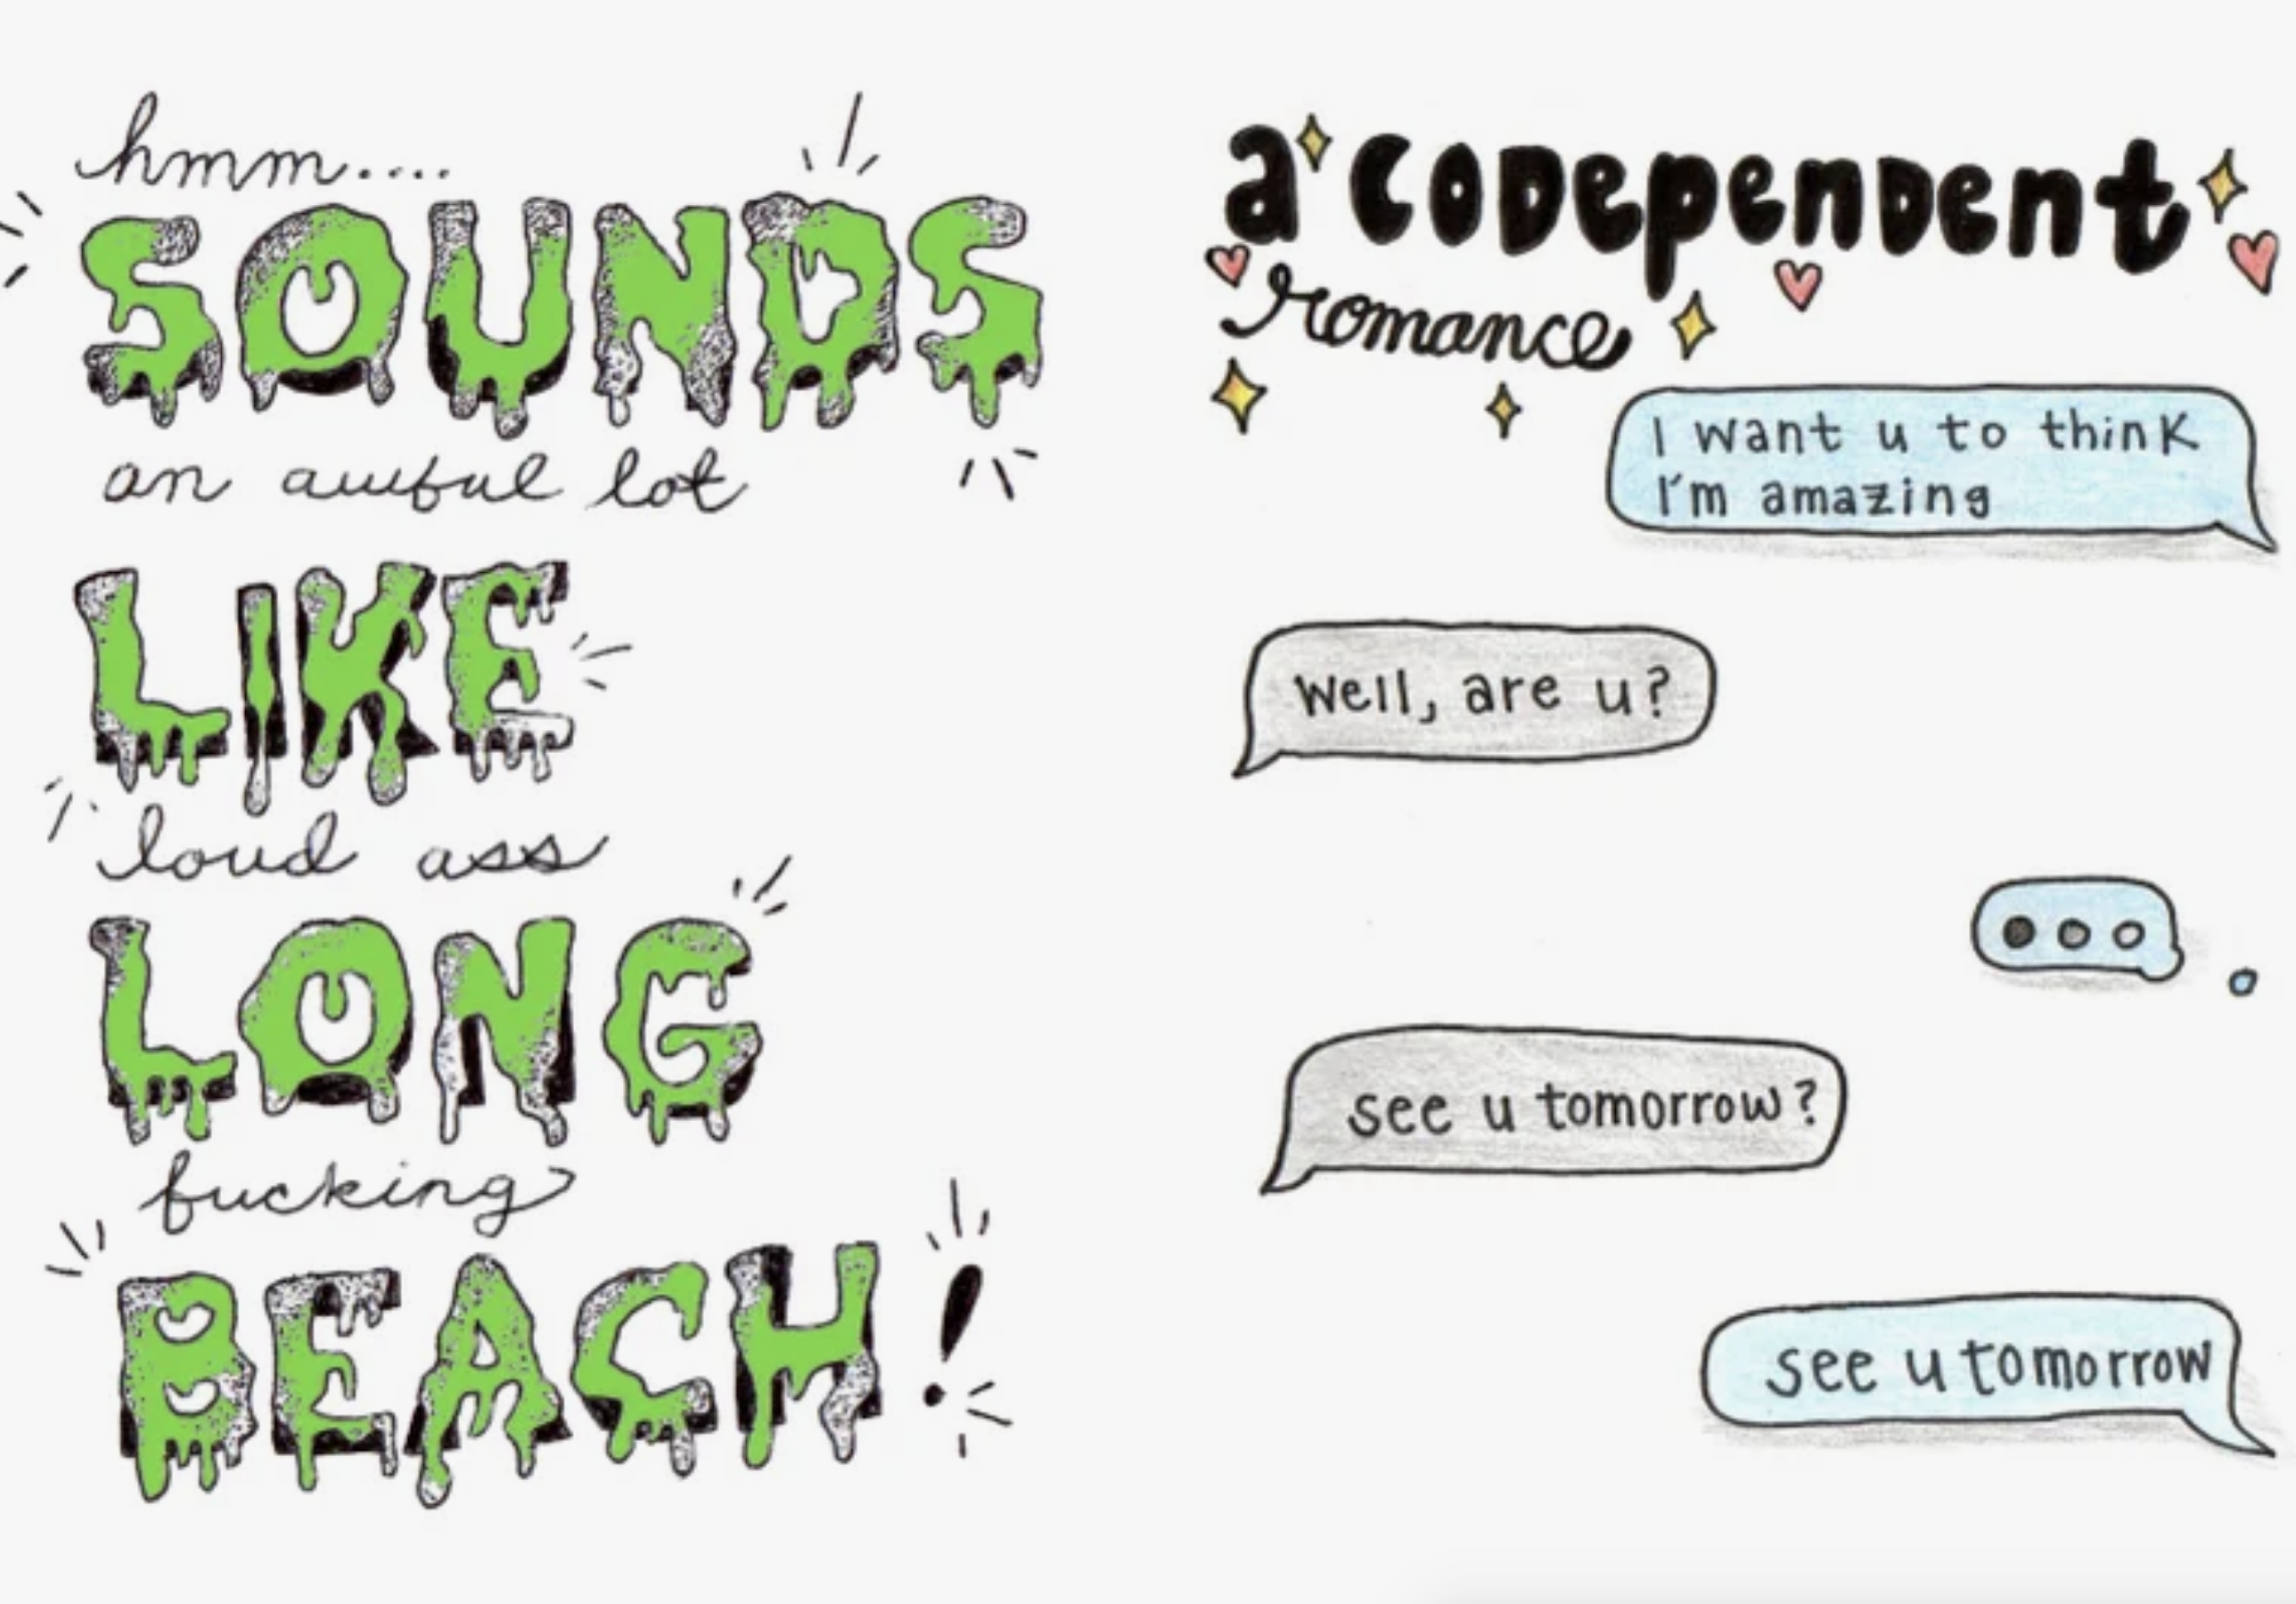 hmm....
SOUNDS
an awful lot
LIKE
loud ass
LONG
fucking
BEACH!
a codependent
romance
I want u to think
I'm amazing
Well, are u?
see u tomorrow?
see u tomorrow